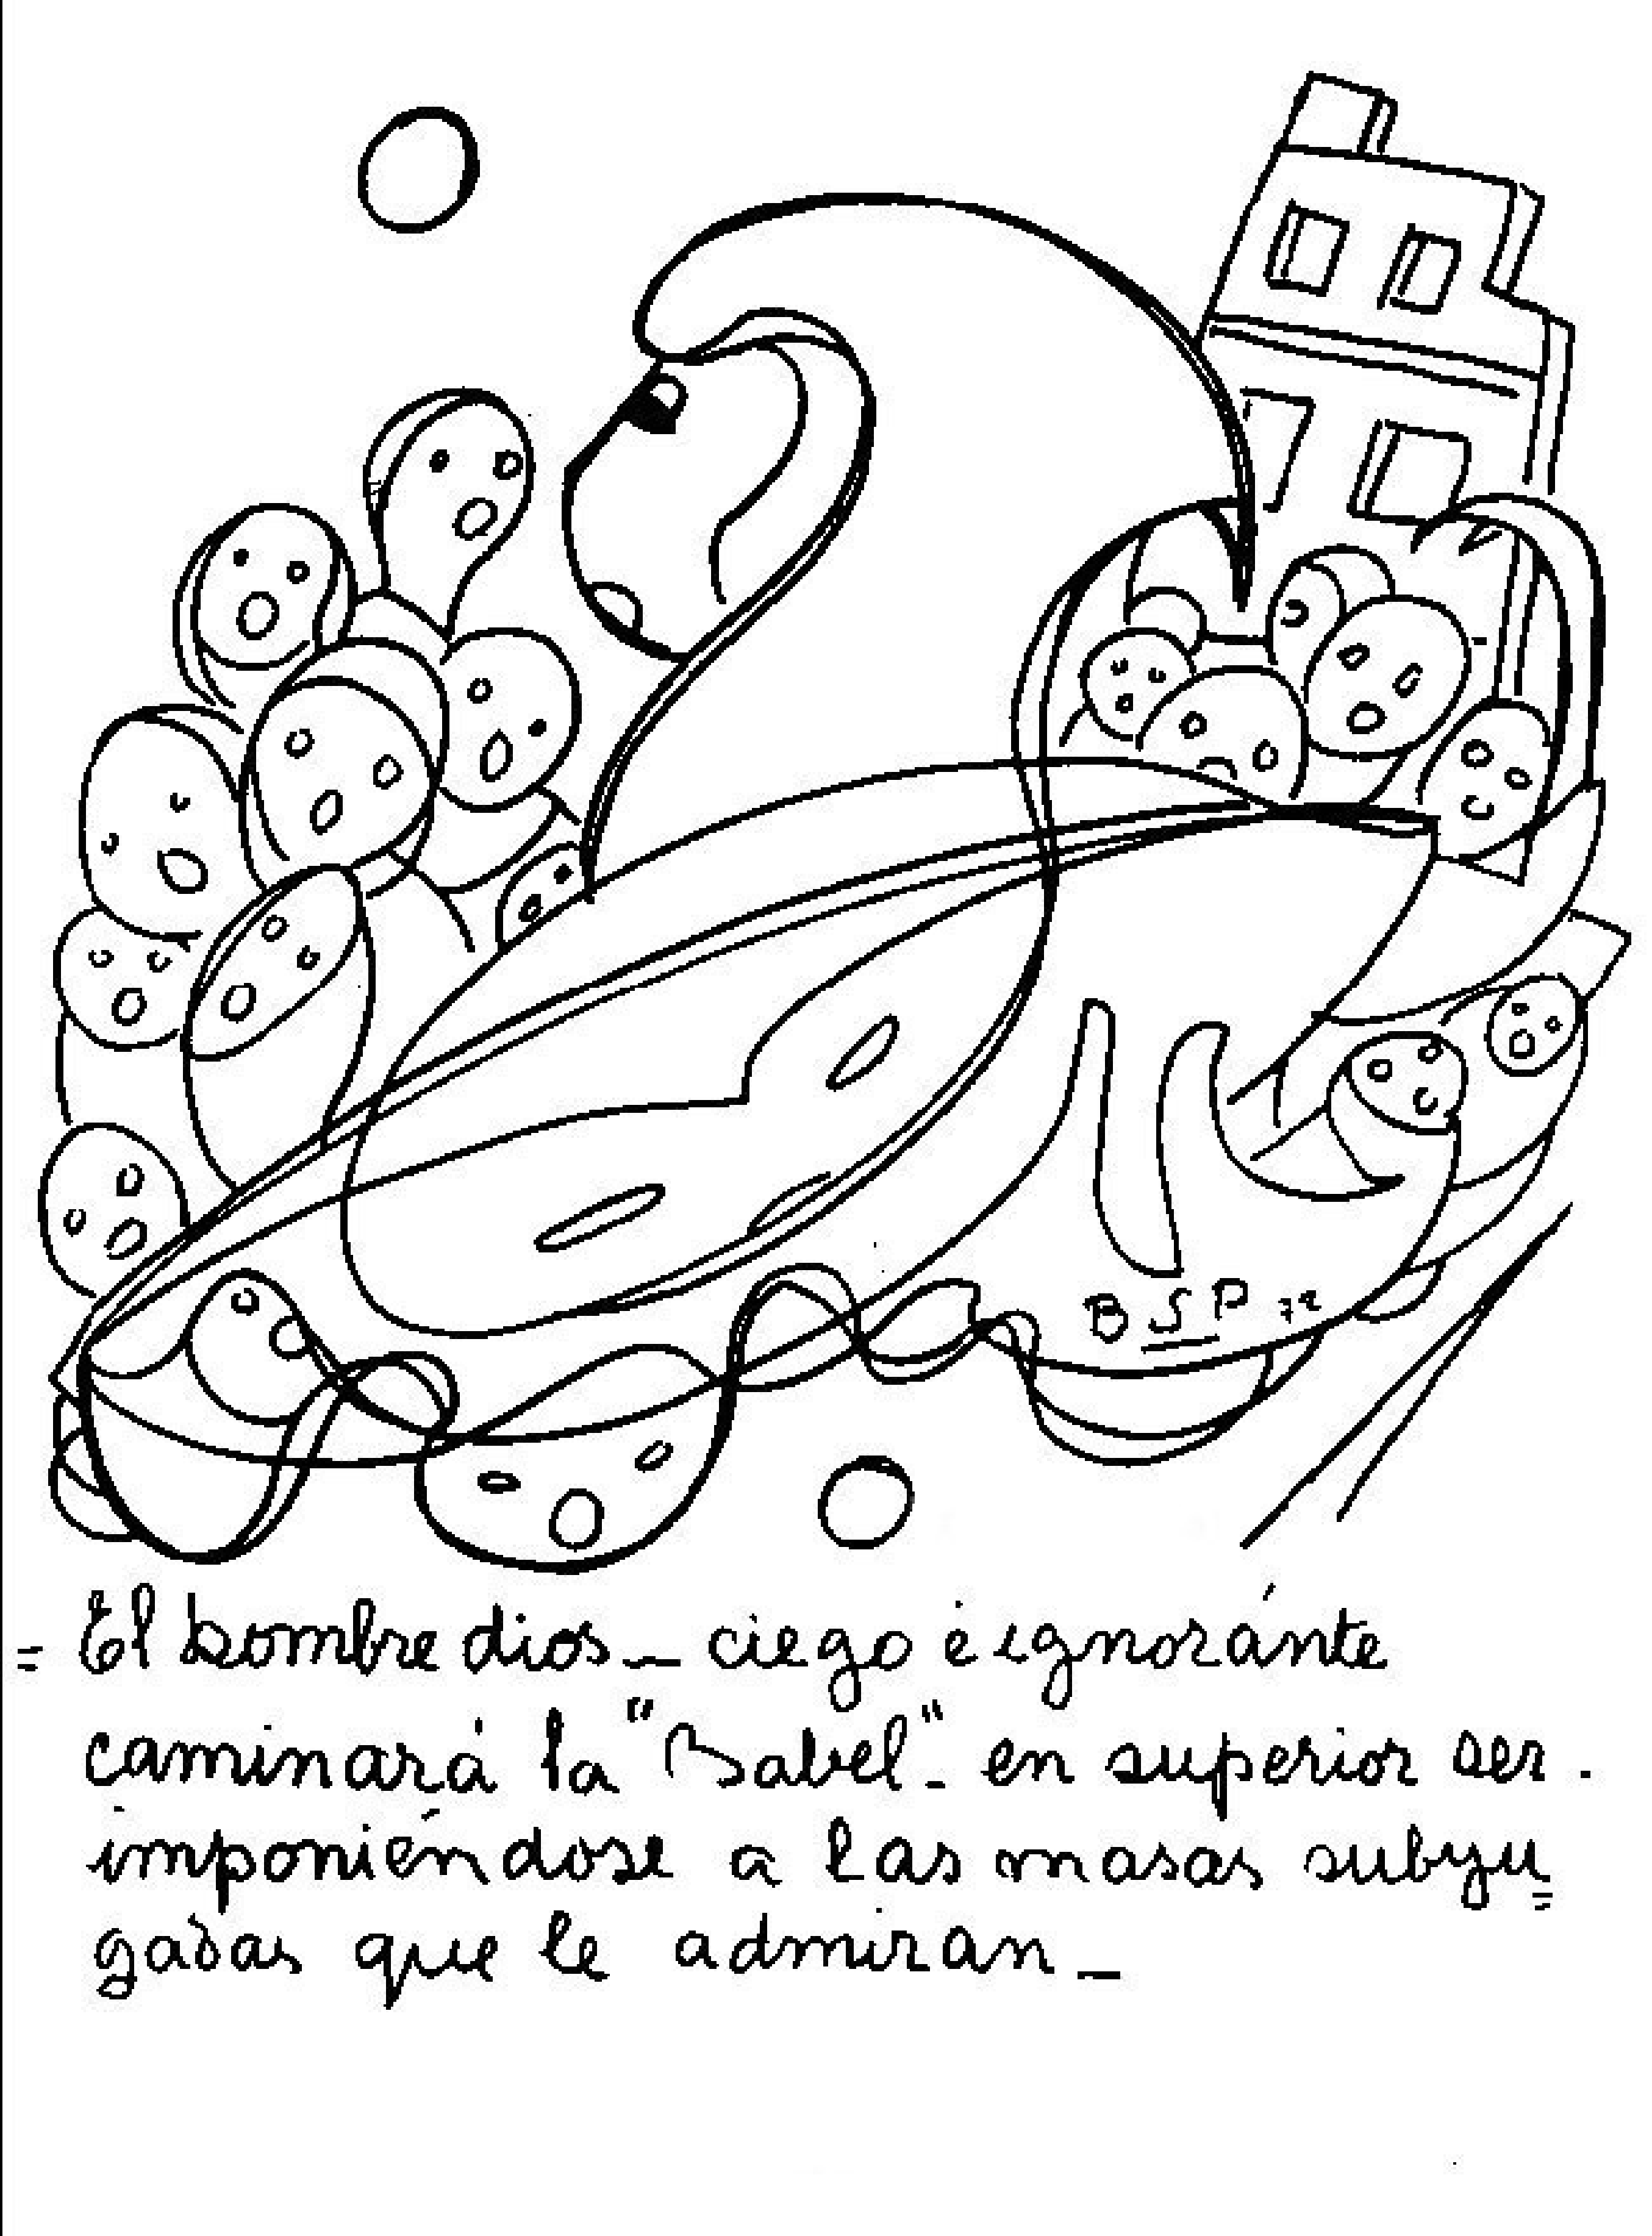 BSP 72
= El hombre dios_ ciego é ignoránte
caminará la "Babel"_ en superior ser.
imponiéndose a las masas subyu=
gadas que le admiran_